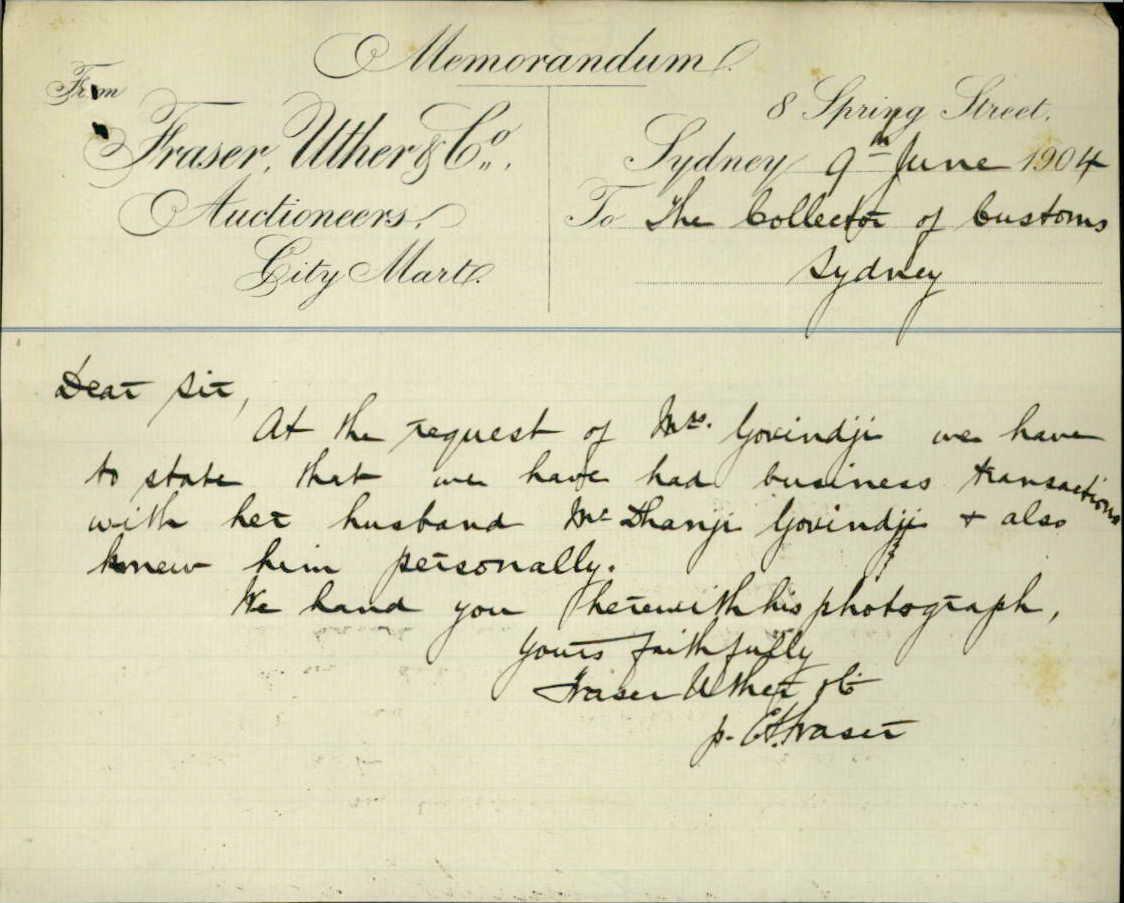 Memorandum.
From
Fraser, Uther & Co.,
Auctioneers,
City Mart.
8 Spring Street,
Sydney 9th June 1904
To The Collector of Customs
Sydney
Dear Sir,
At the request of Mrs. Govindji we have
to state that we have had business transactions
with her husband Mr Dhanji Govindji + also
knew him personally.
We hand you herewith his photograph,
Yours faithfully
Fraser Uther & Co
p. E. Fraser